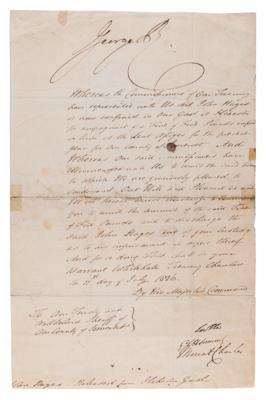 George R.
Whereas the Commissioners of Our Treasury
have represented unto Us that John Hayes
is now confined in Our Gaol at Ilchester
for nonpayment of a Fine of Five Pounds
at the Last Assizes for the present
year for Our County of Somerset And
Whereas Our said Commissioners have
recommended unto Us to remit the said Fine
to which We are graciously pleased to
condescend Our Will and Pleasure is and
We do hereby direct authorize & Command
you to remit the said Fine
of Five Pounds and to discharge the
said John Hayes out of your Custody
as to his imprisonment in respect thereof
And for so doing this shall be your
Warrant Whitehall Treasury Chambers
the 11 day of July 1826.
By His Majesty's Command
To Our Trusty and
Wellbeloved Sheriff of
Our County of Somerset
John Hayes Released from Ilchester Gaol